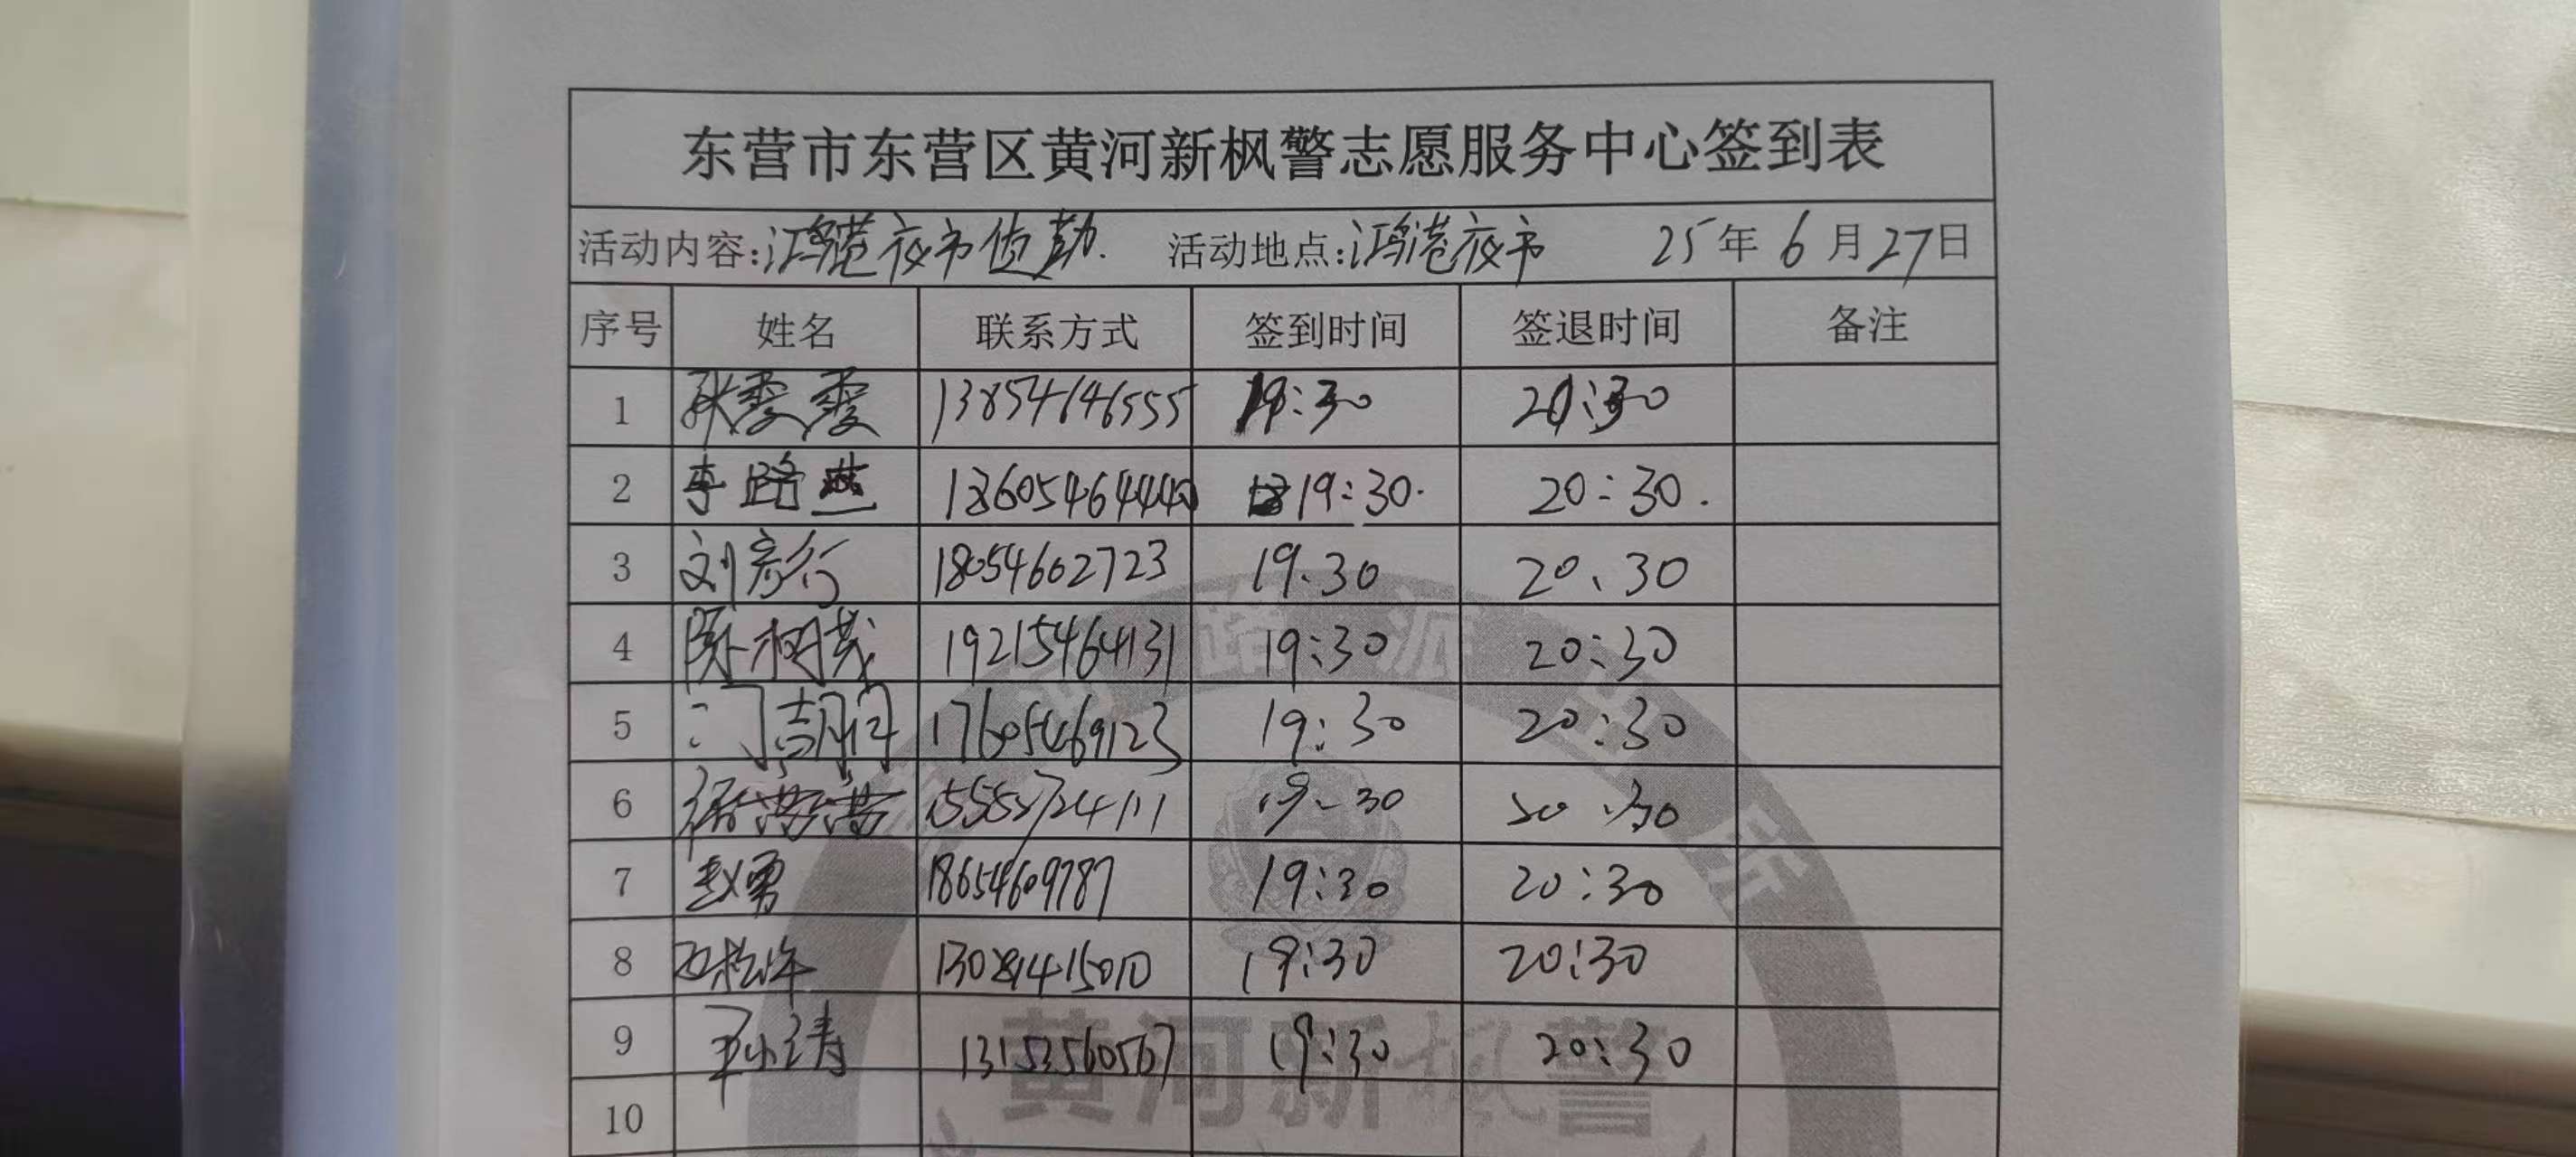 东营市东营区黄河新枫警志愿服务中心签到表
活动内容:鸿港夜市值勤. 活动地点:鸿港夜市 25年6月27日
序号 姓名 联系方式 签到时间 签退时间 备注
1 张霞霞 13854646555 19:30 20:30
2 李路燕 18605464440 19:30. 20:30.
3 刘彦谷 18054602723 19.30 20、30
4 陈树茂 19215464131 19:30 20:30
5 17605469123 19:30 20:30
6 徐萍萍 15552724111 19-30 20:30
7 赵勇 18654609787 19:30 20:30
8 13021415010 19:30 20:30
9 13153560567 19:30 20:30
10
路 派
乐
黄河新枫警